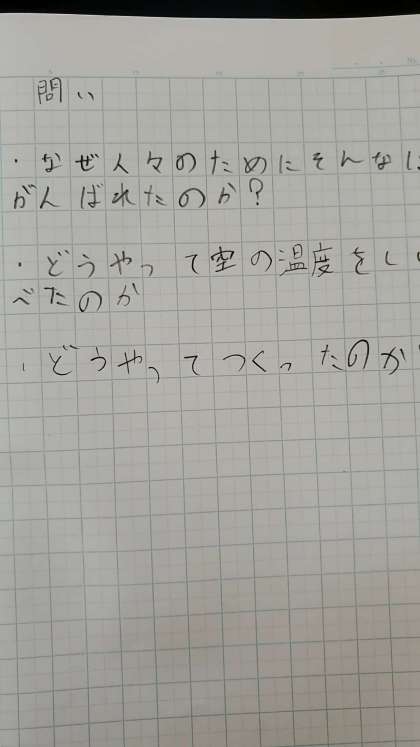 問い
・なぜ人々のためにそんなに
がんばれたのか?
・どうやって空の温度をし
べたのか
・どうやってつくったのか